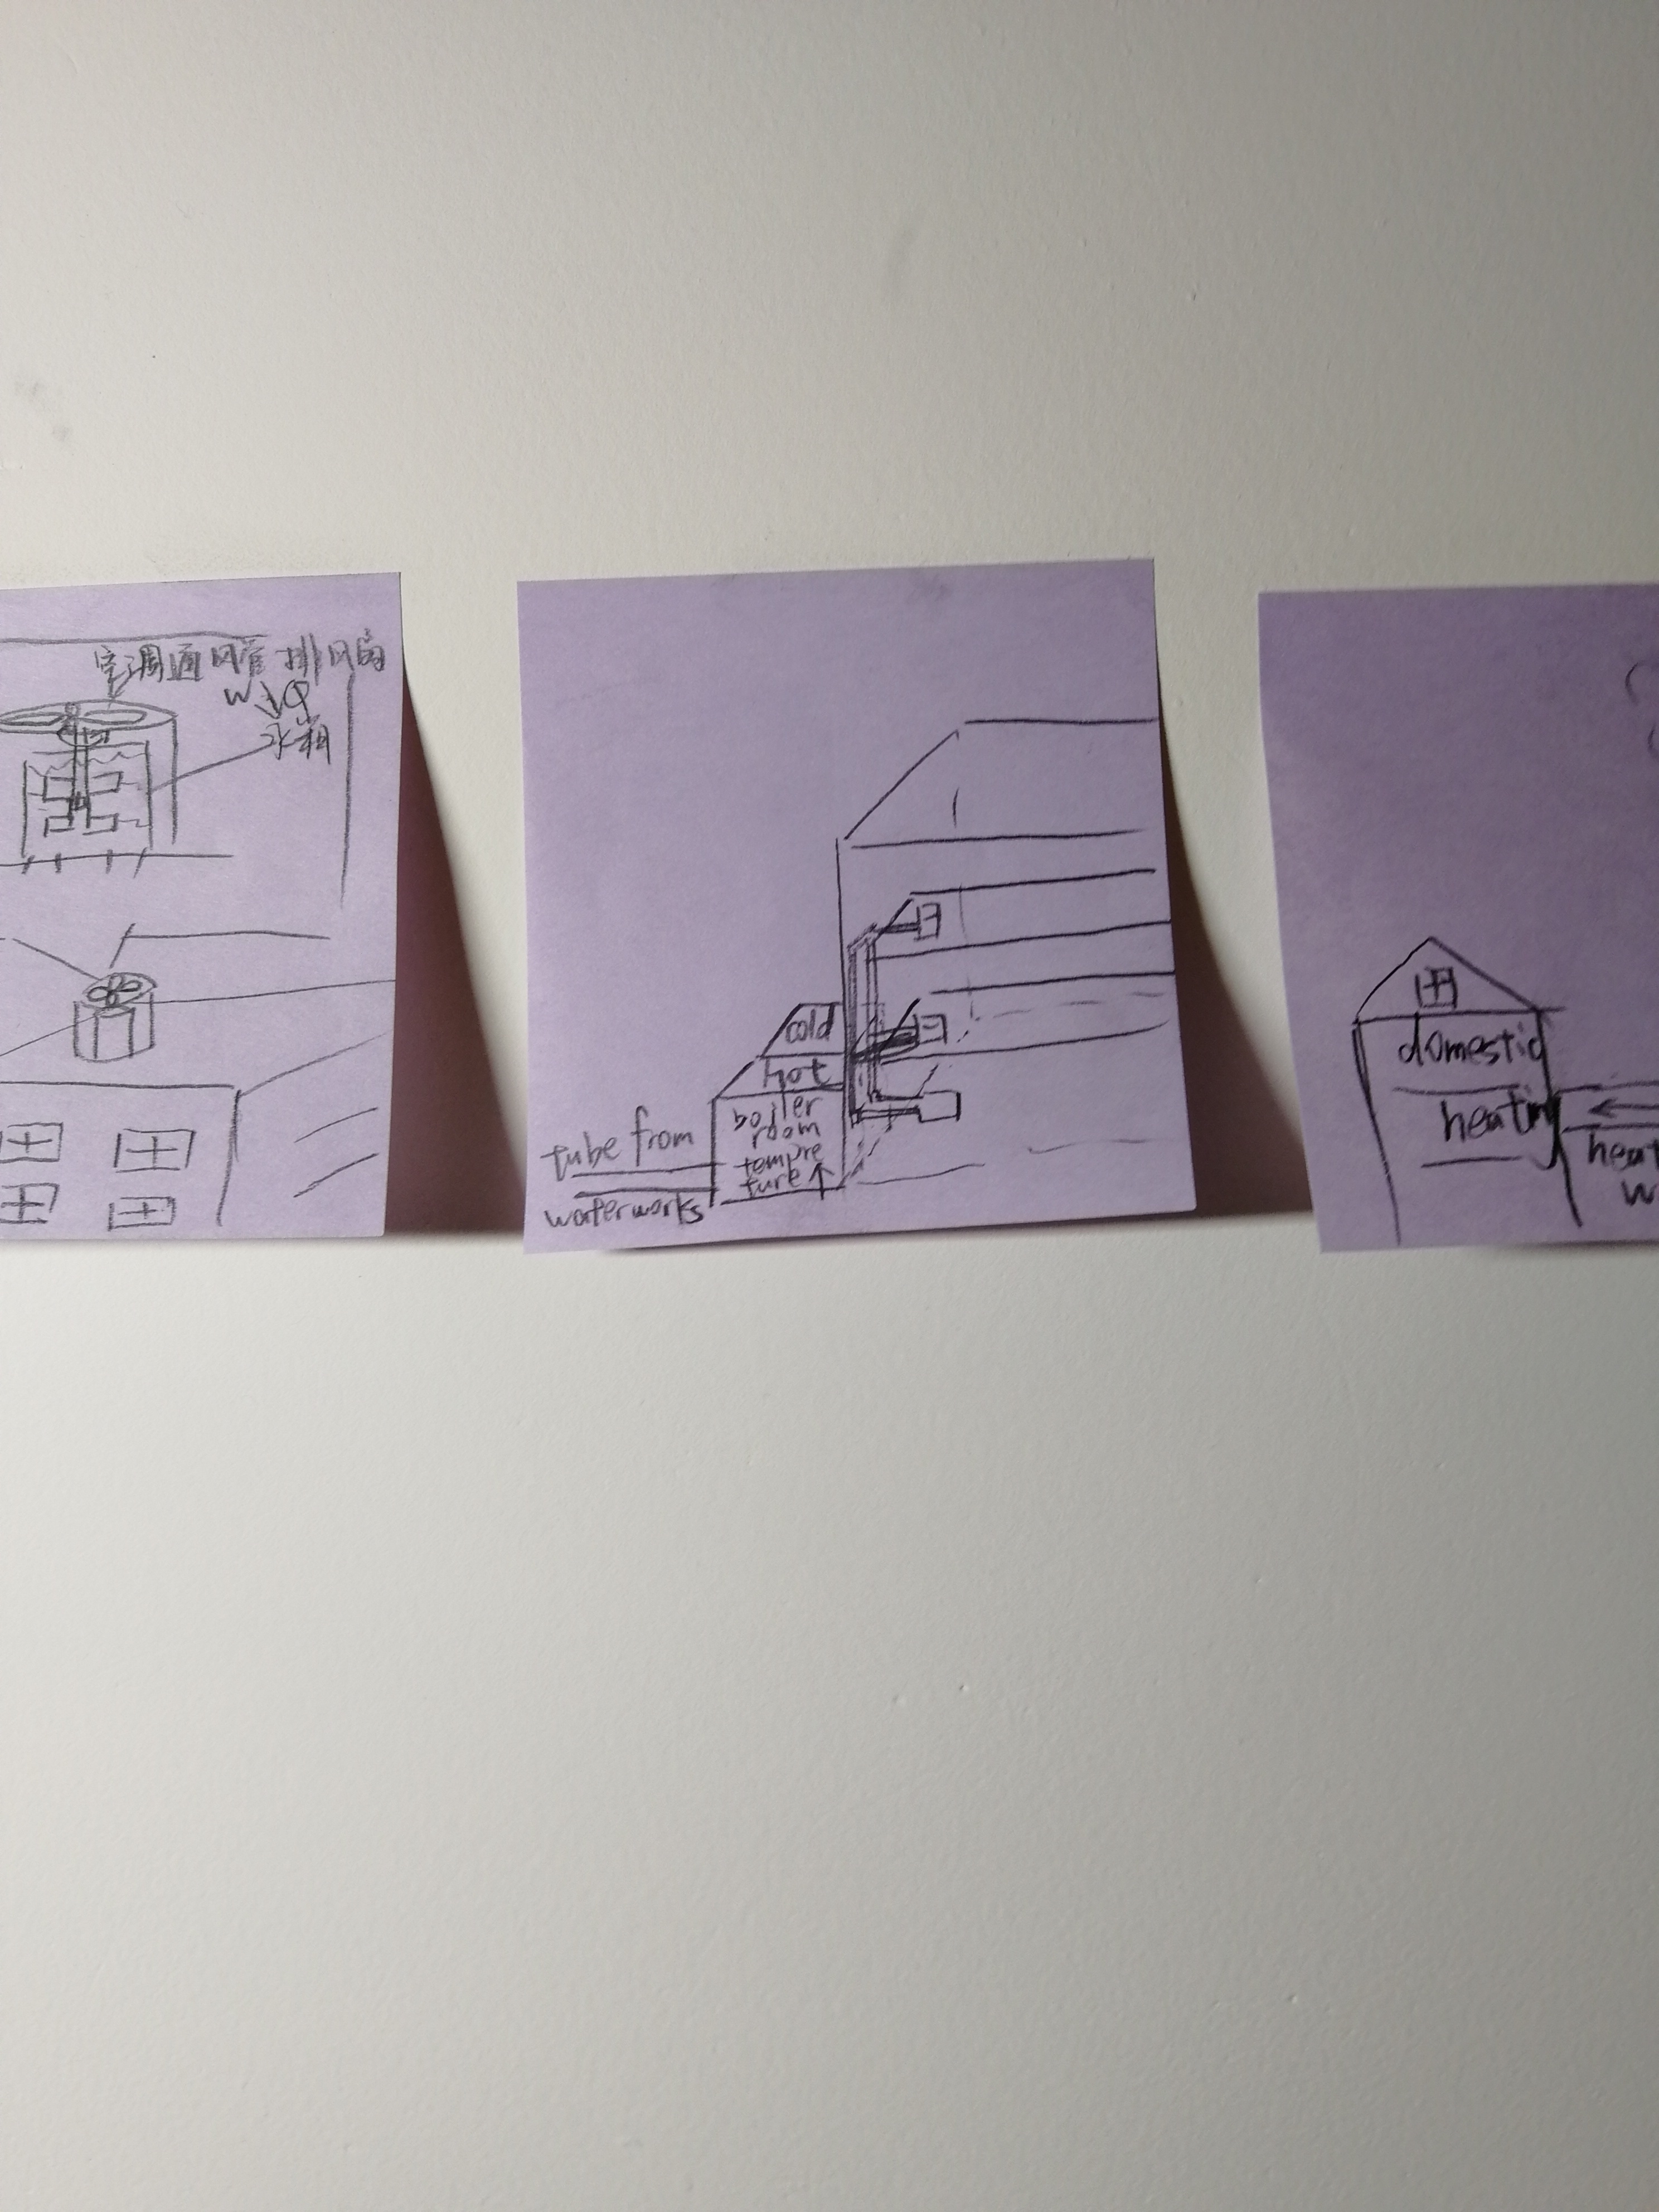 空调通风管排风扇
W→Q
水箱
cold
hot
boiler
room
tempre
ture↑
tube from
waterworks
domestic
heating
heat
w